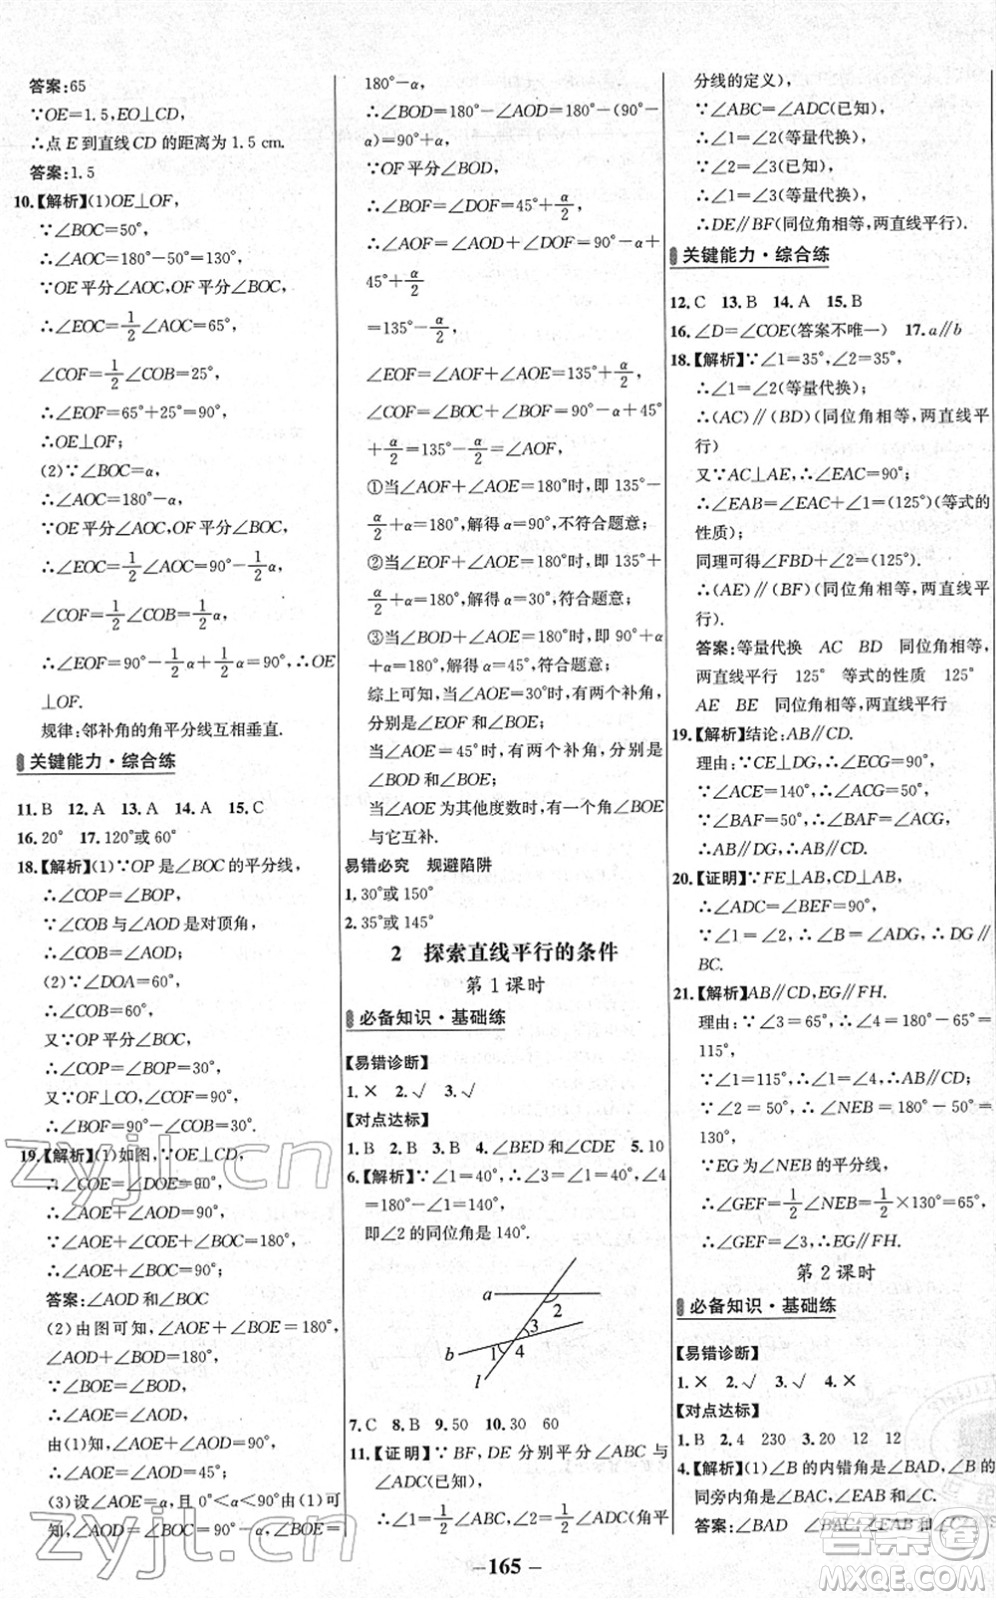 答案:65
∵OE=1.5,EO⊥CD,
∴点 E 到直线 CD 的距离为 1.5 cm.
答案:1.5
10.【解析】(1)OE⊥OF,
∵∠BOC=50°,
∴∠AOC=180°-50°=130°,
∵OE 平分∠AOC,OF 平分∠BOC,
∴∠EOC=1/2∠AOC=65°,
∠COF=1/2∠COB=25°,
∴∠EOF=65°+25°=90°,
∴OE⊥OF;
(2)∵∠BOC=α,
∴∠AOC=180°-α,
∵OE 平分∠AOC,OF 平分∠BOC,
∴∠EOC=1/2∠AOC=90°-1/2α,
∠COF=1/2∠COB=1/2α,
∴∠EOF=90°-1/2α+1/2α=90°,∴OE
⊥OF.
规律:邻补角的角平分线互相垂直.
关键能力·综合练
11.B 12.A 13.A 14.A 15.C
16.20° 17.120°或 60°
18.【解析】(1)∵OP 是∠BOC 的平分线,
∴∠COP=∠BOP,
∵∠COB 与∠AOD 是对顶角,
∴∠COB=∠AOD;
(2)∵∠DOA=60°,
∴∠COB=60°,
又∵OP 平分∠BOC,
∴∠COP=∠BOP=30°,
又∵OF⊥CO,∠COF=90°,
∴∠BOF=90°-60°=30°.
19.【解析】(1)如图,∵OE⊥CD,
∴∠COE=∠DOE=90°,
∴∠AOE+∠AOD=90°,
∵∠AOE+∠COE+∠BOC=180°,
∴∠AOE+∠BOC=90°;
答案:∠AOD 和∠BOC
(2)由图可知,∠AOE+∠BOE=180°,
∠BOD+∠AOD=180°,
∵∠BOE=∠BOD,
∴∠AOE=∠AOD,
由(1)知,∠AOE+∠AOD=90°,
∴∠AOE=∠AOD=45°;
(3)设∠AOE=α,且 0°<α<90°由(1)可
知,∠AOD=∠BOC=90°-α,∠BOE=
180°-α,
∴∠BOD=180°-∠AOD=180°-(90°-
α)=90°+α,
∵OF 平分∠BOD,
∴∠BOF=∠DOF=45°+α/2,
∴∠AOF=∠AOD+∠DOF=90°-α+
45°+α/2
=135°-α/2,
∠EOF=∠AOF+∠AOE=135°+α/2,
∠COF=∠BOC+∠BOF=90°-α+45°
+α/2=135°-α/2=∠AOF,
①当∠AOF+∠AOE=180°时,即 135°-
α/2+α=180°,解得 α=90°,不符合题意;
②当∠EOF+∠AOE=180°时,即 135°+
α/2+α=180°,解得 α=30°,符合题意;
③当∠BOD+∠AOE=180°时,即 90°+
α+α=180°,解得 α=45°,符合题意;
综上可知,当∠AOE=30°时,有两个补角,
分别是∠EOF 和∠BOE;
当∠AOE=45°时,有两个补角,分别是
∠BOD 和∠BOE;
当∠AOE 为其他度数时,有一个角∠BOE
与它互补.
易错必究 规避陷阱
1.30°或 150°
2.35°或 145°
2 探索直线平行的条件
第 1 课时
必备知识·基础练
【易错诊断】
1.× 2.√ 3.√
【对点达标】
1.B 2.B 3.B 4.∠BED 和∠CDE 5.10
6.【解析】∵∠1=40°,∴∠3=∠1=40°,∠4
=180°-∠1=140°,
即∠2 的同位角是 140°.
a
2
3
b
1
4
l
7.C 8.B 9.50 10.30 60
11.【证明】∵BF,DE 分别平分∠ABC 与
∠ADC(已知),
∴∠1=1/2∠ABC,∠2=1/2∠ADC(角平
分线的定义),
∵∠ABC=∠ADC(已知),
∴∠1=∠2(等量代换),
∵∠2=∠3(已知),
∴∠1=∠3(等量代换),
∴DE∥BF(同位角相等,两直线平行).
关键能力·综合练
12.C 13.B 14.A 15.B
16.∠D=∠COE(答案不唯一) 17.a∥b
18.【解析】∵∠1=35°,∠2=35°,
∴∠1=∠2(等量代换);
∴(AC)∥(BD)(同位角相等,两直线平
行)
又∵AC⊥AE,∴∠EAC=90°;
∴∠EAB=∠EAC+∠1=(125°)(等式的
性质);
同理可得∠FBD+∠2=(125°)
∴(AE)∥(BF)(同位角相等,两直线平
行).
答案:等量代换 AC BD 同位角相等,
两直线平行 125° 等式的性质 125°
AE BE 同位角相等,两直线平行
19.【解析】结论:AB∥CD.
理由:∵CE⊥DG,∴∠ECG=90°,
∵∠ACE=140°,∴∠ACG=50°,
∵∠BAF=50°,∴∠BAF=∠ACG,
∴AB∥DG,∴AB∥CD.
20.【证明】∵FE⊥AB,CD⊥AB,
∴∠ADC=∠BEF=90°,
∵∠1=∠2,∴∠ADG=∠B,∴DG∥
BC.
21.【解析】AB∥CD,EG∥FH.
理由:∵∠3=65°,∴∠4=180°-65°=
115°,
∵∠1=115°,∴∠1=∠4,∴AB∥CD;
∵∠2=50°,∴∠NEB=180°-50°=
130°,
∵EG 为∠NEB 的平分线,
∴∠GEF=1/2∠NEB=1/2×130°=65°,
∴∠GEF=∠3,∴EG∥FH.
第 2 课时
必备知识·基础练
【易错诊断】
1.× 2.√ 3.√ 4.×
【对点达标】
1.B 2.4 230 3.20 12 12
4.【解析】(1)∠B 的内错角是∠BAD,∠B 的
同旁内角是∠BAC,∠EAB 和∠C.
答案:∠BAD ∠BAC,∠EAB 和∠C
-165-
zyjl.cn
zyjl.cn
答案圈
MXQE.COM